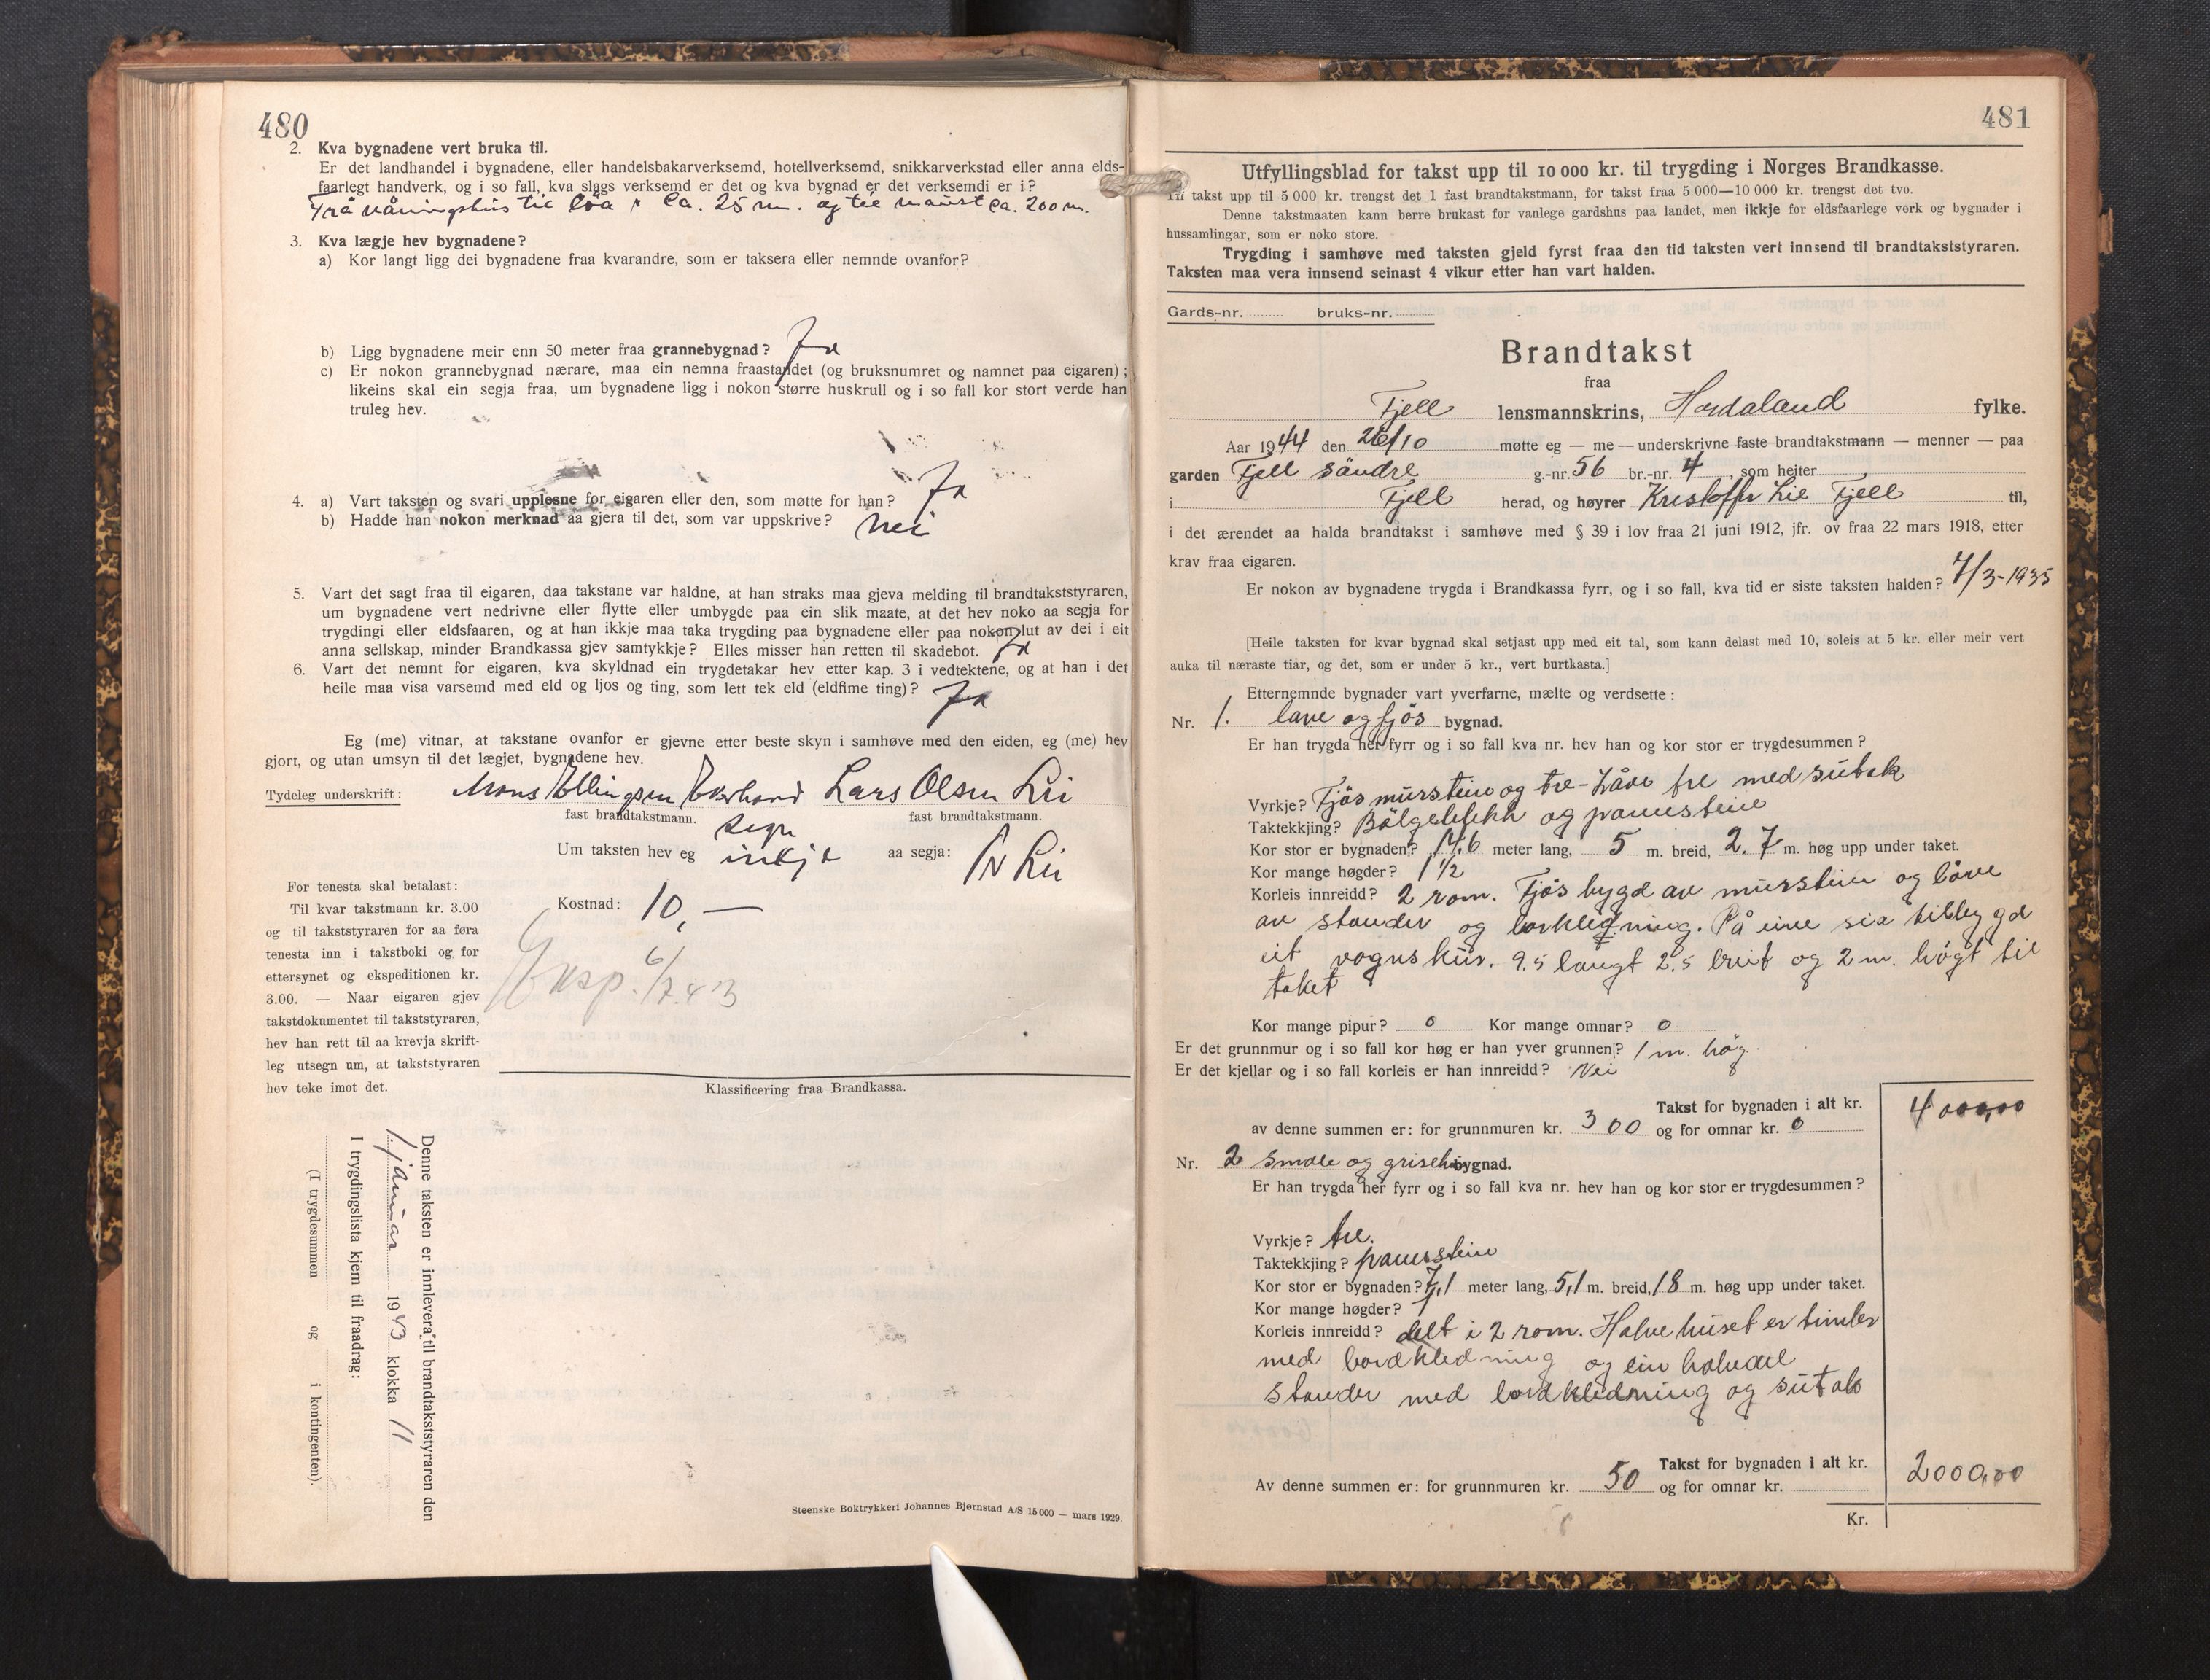 480
2. Kva bygnadene vert bruka til.
Er det landhandel i bygnadene, eller handelsbakarverksemd, hotellverksemd, snikkarverkstad eller anna elds-
faarlegt handverk, og i so fall, kva slags verksemd er det og kva bygnad er det verksemdi er i?
Frå våningshus til löa ca. 25 m. og til naust ca. 200 m.
3. Kva lægje hev bygnadene?
a) Kor langt ligg dei bygnadene fraa kvarandre, som er taksera eller nemnde ovanfor?
b) Ligg bygnadene meir enn 50 meter fraa grannebygnad? Ja
c) Er nokon grannebygnad nærare, maa ein nemna fraastandet (og bruksnumret og namnet paa eigaren);
likeins skal ein segja fraa, um bygnadene ligg i nokon større huskrull og i so fall kor stort verde han
truleg hev.
4. a) Vart taksten og svari upplesne for eigaren eller den, som møtte for han? Ja
b) Hadde han nokon merknad aa gjera til det, som var uppskrive? Nei
5. Vart det sagt fraa til eigaren, daa takstane var haldne, at han straks maa gjeva melding til brandtakststyraren,
um bygnadene vert nedrivne eller flytte eller umbygde paa ein slik maate, at det hev noko aa segja for
trygdingi eller eldsfaaren, og at han ikkje maa taka trygding paa bygnadene eller paa nokon lut av dei i eit
anna sellskap, minder Brandkassa gjev samtykkje? Elles misser han retten til skadebot. Ja
6. Vart det nemnt for eigaren, kva skyldnad ein trygdetakar hev etter kap. 3 i vedtektene, og at han i det
heile maa visa varsemd med eld og ljos og ting, som lett tek eld (eldfime ting)? Ja
Eg (me) vitnar, at takstane ovanfor er gjevne etter beste skyn i samhøve med den eiden, eg (me) hev
gjort, og utan umsyn til det lægjet, bygnadene hev.
Tydeleg underskrift: Mons Ellingsen Ekerhovd Lars Olsen Lii
fast brandtakstmann. fast brandtakstmann.
Um taksten hev eg inkje aa segja: N Lii
For tenesta skal betalast:
Til kvar takstmann kr. 3.00
og til takststyraren for aa føra
tenesta inn i takstboki og for
ettersynet og ekspeditionen kr.
3.00. — Naar eigaren gjev
takstdokumentet til takststyraren,
hev han rett til aa krevja skrift-
leg utsegn um, at takststyraren
hev teke imot det.
Kostnad: 10,—
Eksp. 6/7.43
Klassificering fraa Brandkassa.
Denne taksten er innlevera till brandtakststyraren den
1. januar 1943 klokka 11
I trygdingslista kjem til fraadrag:
(I trygdesummen og i kontingenten).
Steenske Boktrykkeri Johannes Bjørnstad A/S 15 000 — mars 1929.
481
Utfyllingsblad for takst upp til 10 000 kr. til trygding i Norges Brandkasse.
Til takst upp til 5 000 kr. trengst det 1 fast brandtakstmann, for takst fraa 5 000—10 000 kr. trengst det tvo.
Denne takstmaaten kann berre brukast for vanlege gardshus paa landet, men ikkje for eldsfaarlege verk og bygnader i
hussamlingar, som er noko store.
Trygding i samhøve med taksten gjeld fyrst fraa den tid taksten vert innsend til brandtakststyraren.
Taksten maa vera innsend seinast 4 vikur etter han vart halden.
Gards-nr. bruks-nr.
Brandtakst
fraa
Fjell lensmannskrins, Hordaland fylke.
Aar 1944 den 26/10 møtte eg — me — underskrivne faste brandtakstmann — menner — paa
garden Fjell söndre g.-nr. 56 br.-nr. 4 som heiter
i Fjell herad, og høyrer Kristoffer Lie Fjell til,
i det ærendet aa halda brandtakst i samhøve med § 39 i lov fraa 21 juni 1912, jfr. ov fraa 22 mars 1918, etter
krav fraa eigaren.
Er nokon av bygnadene trygda i Brandkassa fyrr, og i so fall, kva tid er siste taksten halden? 7/3-1935
[Heile taksten for kvar bygnad skal setjast upp med eit tal, som kann delast med 10, soleis at 5 kr. eller meir vert
auka til næraste tiar, og det, som er under 5 kr., vert burtkasta.]
Etternemnde bygnader vart yverfarne, mælte og verdsette:
Nr. 1. löve og fjös bygnad.
Er han trygda her fyrr og i so fall kva nr. hev han og kor stor er trygdesummen?
Vyrkje? Fjös murstein og tre - Låve tre med sutak
Taktekkjing? Bölgeblekk og pannestein
Kor stor er bygnaden? 14.6 meter lang, 5 m. breid, 2.7 m. høg upp under taket.
Kor mange høgder? 1 1/2
Korleis innreidd? 2 rom. Fjös bygd av murstein og låve
av stander og bordkledning. På eine sia tilbygd
eit vognskur. 9.5 langt 2.5 breit og 2 m. högt til
taket
Kor mange pipur? 0 Kor mange omnar? 0
Er det grunnmur og i so fall kor høg er han yver grunnen? 1 m. høg
Er det kjellar og i so fall korleis er han innreidd? Nei
Takst for bygnaden i alt kr. 4000,00
av denne summen er: for grunnmuren kr. 300 og for omnar kr. 0
Nr. 2 Smale og grisehus bygnad.
Er han trygda her fyrr og i so fall kva nr. hev han og kor stor er trygdesummen?
Vyrkje? tre.
Taktekkjing? pannestein
Kor stor er bygnaden? 7,1 meter lang, 5,1 m. breid, 18 m. høg upp under taket.
Kor mange høgder? 1
Korleis innreidd? delt i 2 rom. Halve huset er timber
med bordkledning og ein halvdel
stander med bordkledning og sutak
Takst for bygnaden i alt kr. 2000,00
Av denne summen er: for grunnmuren kr. 50 og for omnar kr.
Kr.